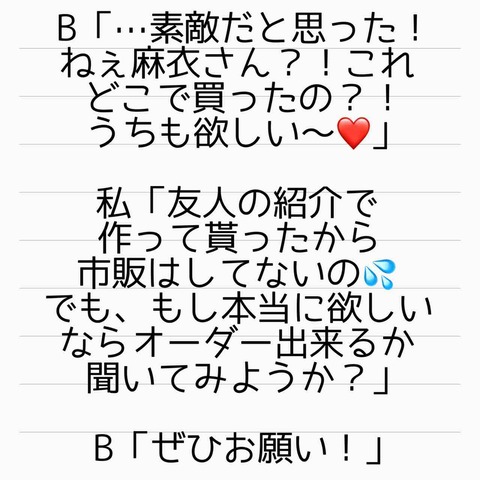 B「…素敵だと思った！
ねぇ麻衣さん？！これ
どこで買ったの？！
うちも欲しい〜❤️」
私「友人の紹介で
作って貰ったから
市販はしてないの💦
でも、もし本当に欲しい
ならオーダー出来るか
聞いてみようか？」
B「ぜひお願い！」